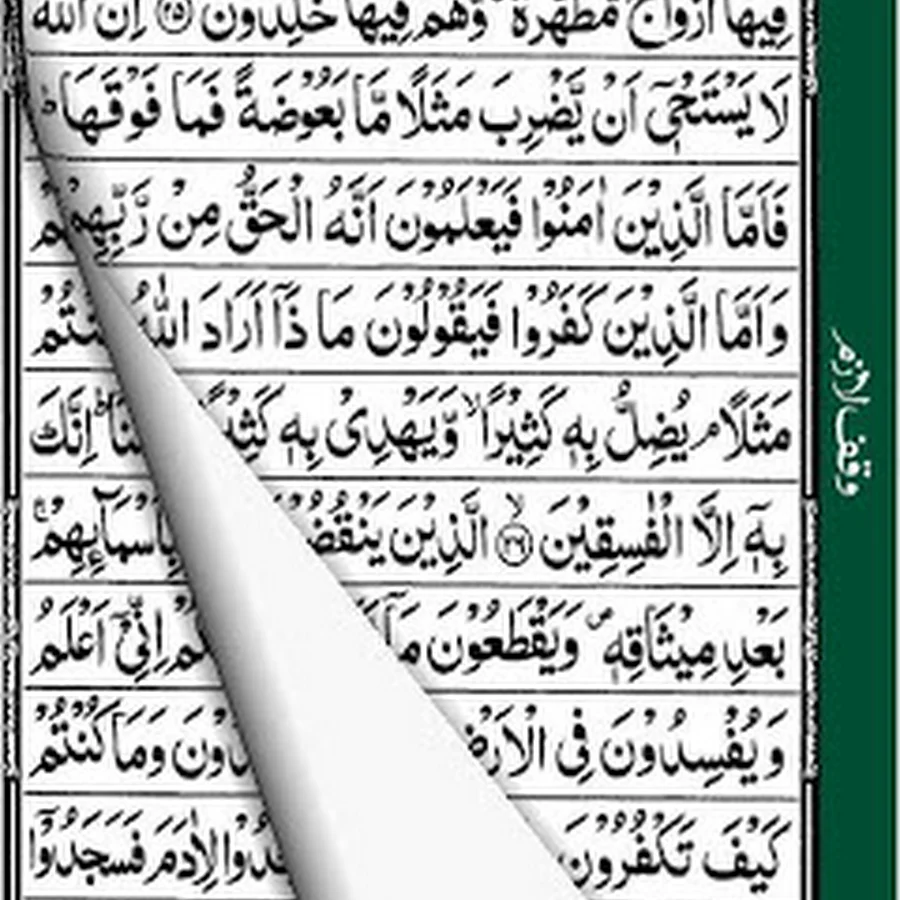 فِيهَا اَزْوَاجٌ مُّطَهَّرَةٌ وَّهُمْ فِيهَا خٰلِدُونَ ﴿٢٥﴾ اِنَّ اللّٰهَ
لَا يَسْتَحْيٖٓ اَنْ يَّضْرِبَ مَثَلًا مَّا بَعُوْضَةً فَمَا فَوْقَهَا ؕ
فَاَمَّا الَّذِيْنَ اٰمَنُوْا فَيَعْلَمُوْنَ اَنَّهُ الْحَقُّ مِنْ رَّبِّهِمْ
وَاَمَّا الَّذِيْنَ كَفَرُوْا فَيَقُوْلُوْنَ مَا ذَآ اَرَادَ اللّٰهُ
مَثَلًا ۘ يُضِلُّ بِهٖ كَثِيْرًا ۙ وَّيَهْدِىْ بِهٖ اِنَّكَ
بِهٖٓ اِلَّا الْفٰسِقِيْنَ ﴿٢٦﴾ الَّذِيْنَ بِاَسْمَآىِٕهِمْ ۚ
بَعْدِ مِيْثَاقِهٖ ۪ وَيَقْطَعُوْنَ مَآ اِنِّىْٓ اَعْلَمُ
وَيُفْسِدُوْنَ فِى وَمَا كُنْتُمْ
كَيْفَ تَكْفُرُوْنَ لِاٰدَمَ فَسَجَدُوْٓا
وقف لازم